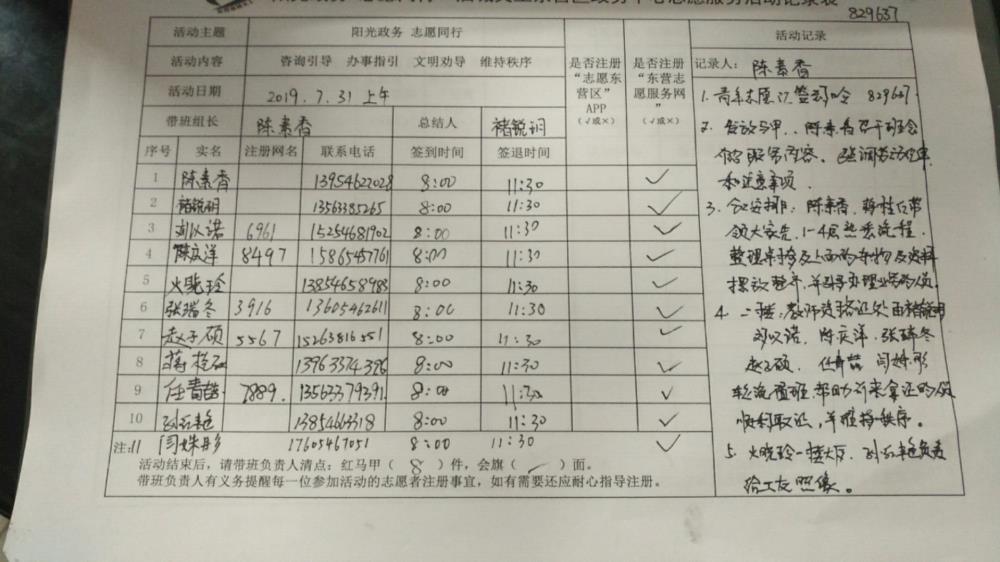 829637
活动主题 阳光政务 志愿同行
活动内容 咨询引导 办事指引 文明劝导 维持秩序
活动日期 2019.7.31 上午
带班组长 陈素香 总结人 褚锐玥
是否注册“志愿东营区”APP（√或×）
是否注册“东营志愿服务网”（√或×）
序号 实名 注册网名 联系电话 签到时间 签退时间
1 陈素香 13954622028 8:00 11:30 ✓
2 褚锐玥 13563385265 8:00 11:30 ✓
3 刘以诺 6961 15254681902 8:00 11:30 ✓
4 陈庆洋 8497 15865457761 8:00 11:30 ✓
5 火晓玲 13854658983 8:00 11:30 ✓
6 张瑞冬 3916 13605462611 8:00 11:30 ✓
7 赵子硕 5567 15263816551 8:00 11:30 ✓
8 蒋桂 13963374396 8:00 11:30 ✓
9 任青喆 7889. 13563379391 8:00 11:30 ✓
10 孙 艳 13854663318 8:00 11:30 ✓
注:11 闫姝彤 17605467051 8:00 11:30 ✓
活动结束后，请带班负责人清点：红马甲（ 8 ）件，会旗（ ）面。
带班负责人有义务提醒每一位参加活动的志愿者注册事宜，如有需要还应耐心指导注册。
活动记录
记录人：陈素香
1. 青年志愿 签到 829637.
2. 发放马甲，陈素香召开班会
服务内容，强调
和注意事项.
3. 安排：陈素香，蒋桂 带
领大家先 1-4层熟悉流程，
整理 上面的 物及资料
摆放整齐，并引导办理业务的人员.
4. 二楼：教师资格证处由褚锐玥
刘以诺，陈庆洋，张瑞冬
赵子硕，任青喆 闫姝彤
轮流值班，帮助 来拿证的人员
顺利取证，并维持秩序。
5. 火晓玲一楼大厅，孙 艳负责
给工友照像。